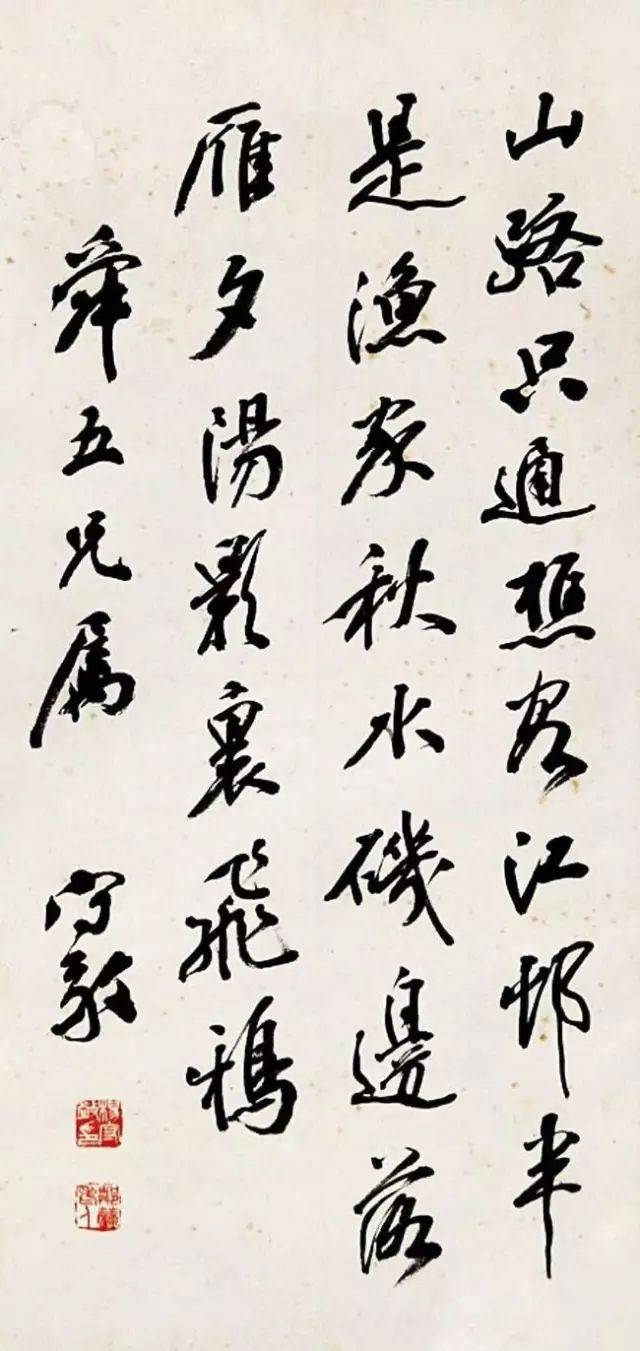 山路只通樵客江邨半
是漁家秋水磯邊落
雁夕陽影裏飛鴉
舜五兄屬
守敬